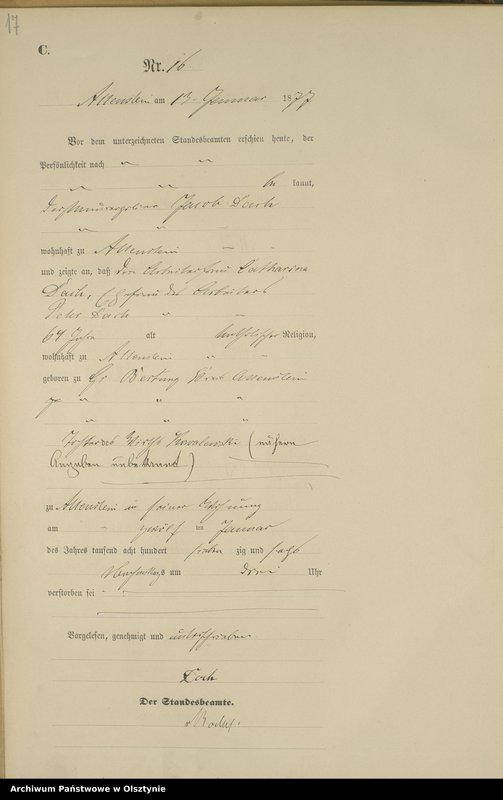 17
C.
Nr. 16
Allenstein am 13. Januar 1877
Vor dem unterzeichneten Standesbeamten erschien heute, der
Persönlichkeit nach
be kannt,
der Jacob Dach
wohnhaft zu Allenstein
und zeigte an, daß die Arbeiterfrau Catharina
Dach, Ehefrau des Arbeiters
Peter Dach
64 Jahre alt katholischer Religion,
wohnhaft zu Allenstein
geboren zu Gr Bertung Kreis Allenstein
Tochter des Wirths Kowalewski (nähere
Angaben unbekannt)
zu Allenstein in seiner Wohnung
am zwölf im Januar
des Jahres tausend acht hundert sieben zig und
Nachmittags um drei Uhr
verstorben sei
Vorgelesen, genehmigt und unterschrieben
Der Standesbeamte.
Archiwum Państwowe w Olsztynie